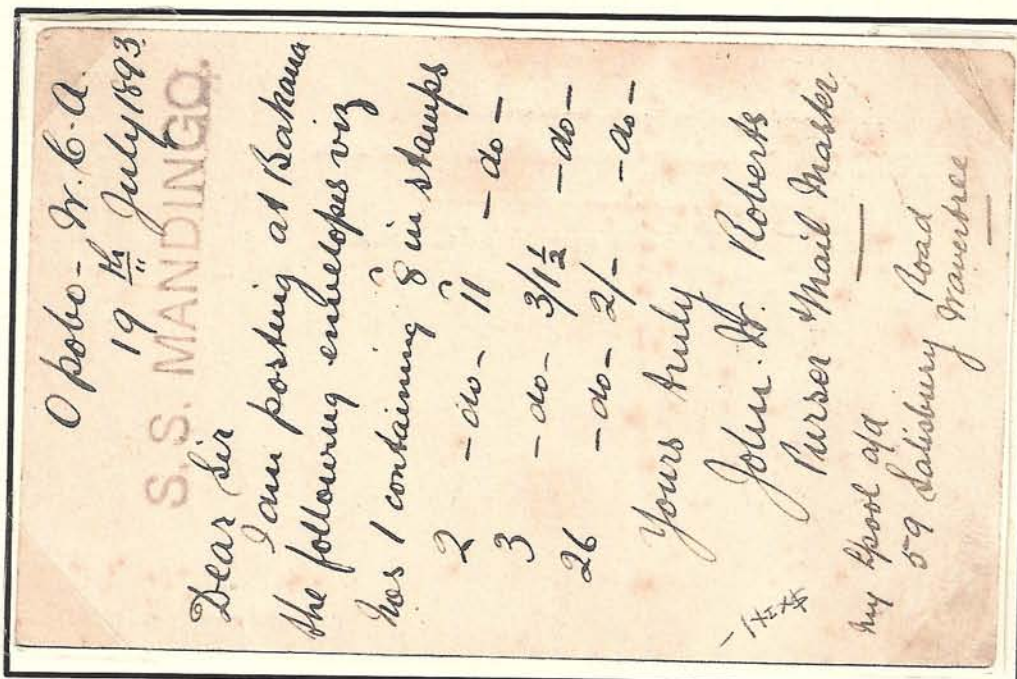 Opobo - W. C. A.
19th July 1893
S. S. MANDINGO.
Dear Sir
I am posting at Bakana
the following envelopes viz
Nos 1 containing 8 in stamps
2 - do - 11 - do -
3 - do - 3/1½ - do -
26 - do - 2/- - do -
Yours truly
John. W. Roberts
Purser & Mail Master
My Lpool a/d
59 Salisbury Road
Wavertree